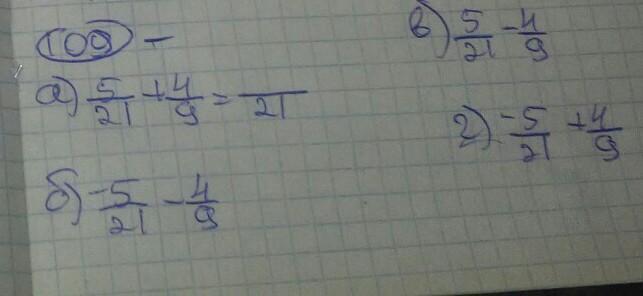 109 –
а) 5/21 + 4/9 = /21
б) -5/21 - 4/9
в) 5/21 - 4/9
г) -5/21 + 4/9